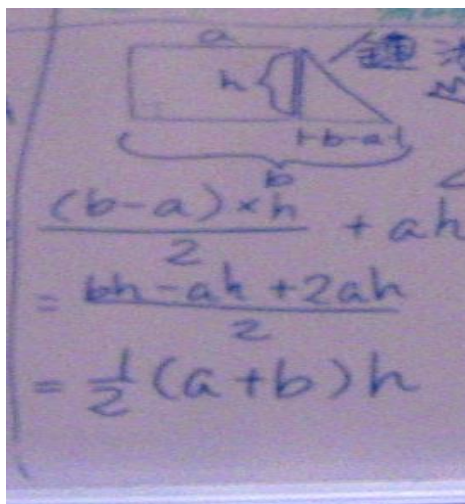 a
h
|-b-a-|
b
(b-a)×h/2 + ah
= bh-ah+2ah/2
= 1/2(a+b)h